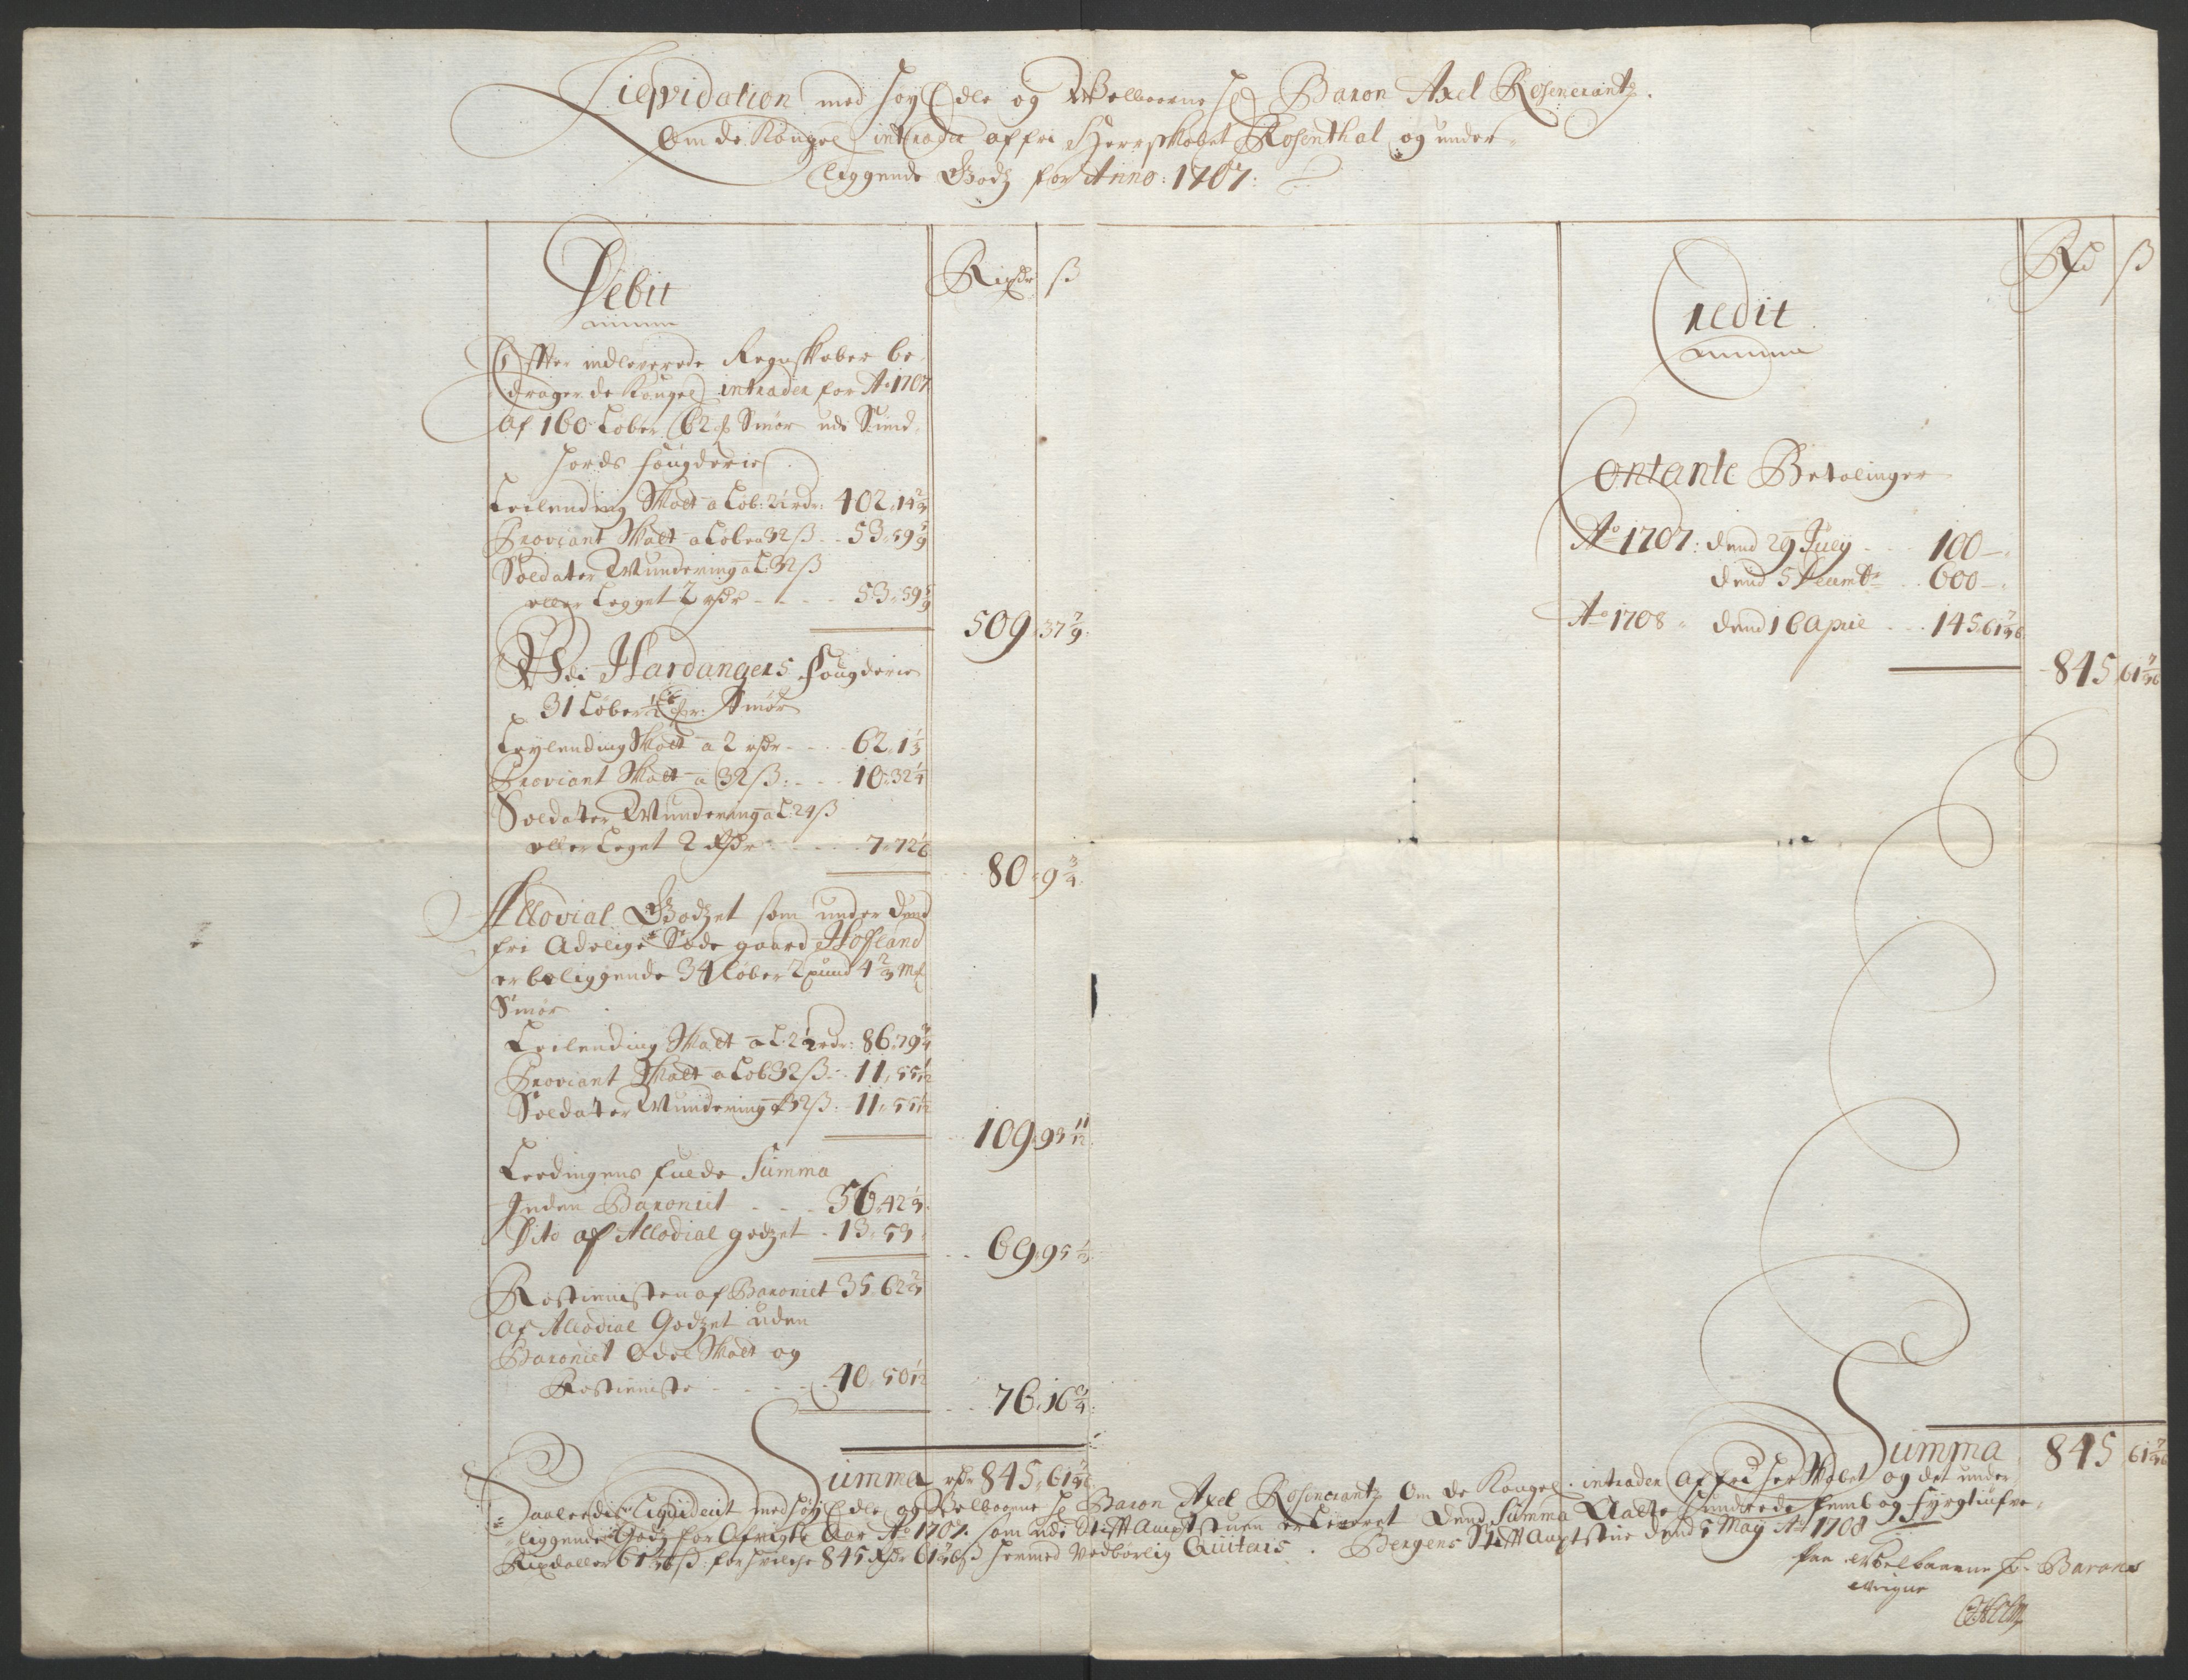 Liqvidation med HøyEdle og Welbaarne Hr Baron Axel Rosencrantz.
Om de Kongel intrader af fri Herrskabet Rosenthal og under-
liggende Godz for Anno: 1707:
Debit
Rixdr ß
Efter indleverede Regnskaber be-
drager de Kongel intrader for Ao 1707
Af 160 Løber 62 Smør udi Sund-
hords fougderie
Leilending Skatt a Løb: 2½ rdr: 402.14⅔
Proviant Skatt a Løb a 32 ß - - 53.59 5/9
Soldater Munderinga L: 32 ß
eller Legget 2 rdr - - - 53.59 5/9
509. 37 7/9
Udi Hardangers fougderie
31 Løber Smør
Leylending Skatt a 2 rdr - - - 62.1⅓
Proviant Skatt a 32 ß: - - - 10.32¼
Soldater Munderinga L: 24 ß
eller Leget 2 Rdr - - - 7.72⅙
80. 9¾
Allovial Godzet som under dend
fri Adelige Sæde gaard Hofland
er beliggende 34 Løber 2 pund 4⅔ Mk
Smør
Leilending Skatt a L: 2½ rdr: 86.79¾
Proviant Skatt a Løb 32 ß - 11.55 1/12
Soldater Mundering a 32 ß: - 11.55 1/12
109. 93 11/12
Leedingens fulde Summa
Inden Baroniet - - - 56.42⅓
Dito af Allodial godzet - 13.53
69. 95⅓
Rostienisten af Baroniet 35.62⅔
Af Allodial Godzet uden
Baroniet Odel Skatt og
Rostieniste - - - - 40.50 1/12
76. 16¾
Summa rdr 845. 61 7/36
Credit
Rd ß
Contante Betalinger
Ao 1707: dend 29 Julij - - - 100 -
dend 5 Decembr - - 600 -
Ao 1708 - dend 16 April - - 145.61 7/36
845. 61 7/36
Summa 845 61 7/36
Saaleedis Liqvideret med HøyEdle og Welbaarne Hr Baron Axel Rosencrantz Om de Kongel: intrader Af fri HerSkabet og det under
liggende Godz for Afvigte Aar Ao 1707. som udi Stifft Ampt stuen er Leveret Dend Summa Aatte Hundrede femb og fyrgtiufve
Rixdaller 61 7/36 ß: for hvilche 845 Rdr 61 7/36 ß hermed Vedbørlig Qviteris. Bergens Stifft Ampt stue dend 5 Maij Ao 1708
Paa Welbaarne Hr Barons
weigne